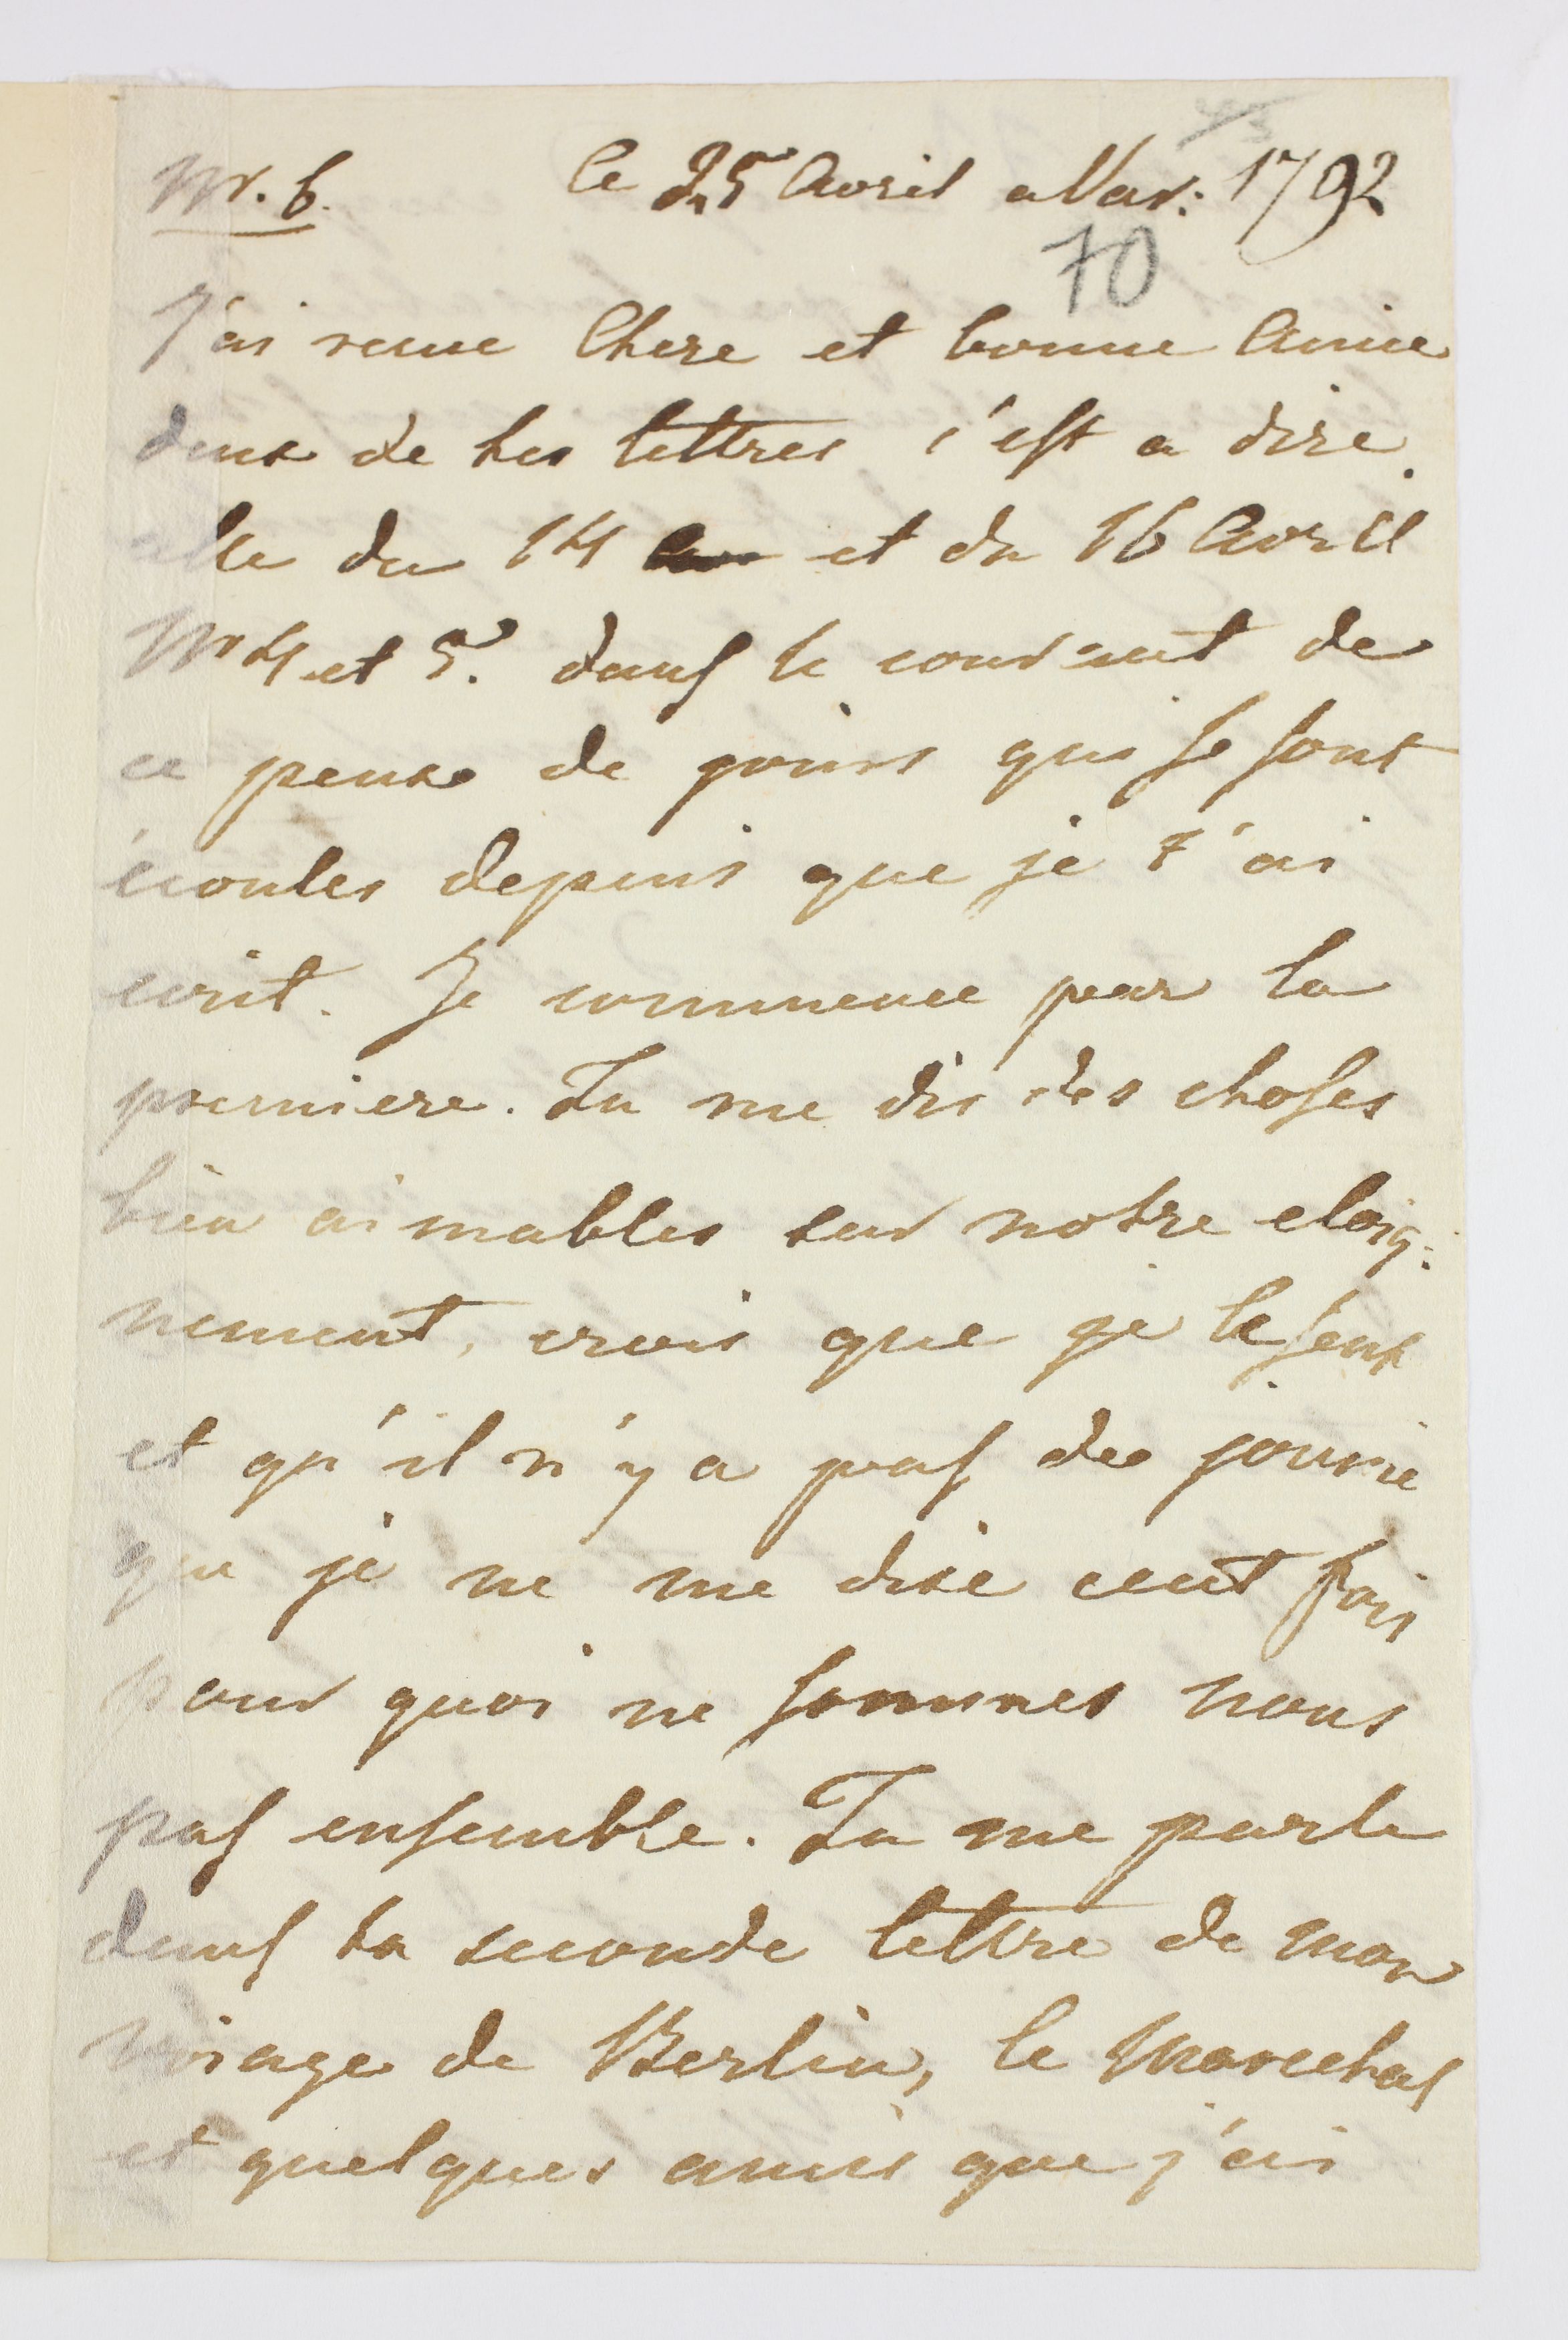 Nr. 6. le 25 Avril a Var: 1792
70
J'ai recue Chere et bonne Amie
deux de tes lettres c'est a dire
elle du 14 et du 16 Avril
Nr 4 et 5. dans le courant de
ce peux de jours qui se sont
écoules depuis que je t'ai
ecrit. Je commence par la
premiere. Tu me dis des choses
bien aimables sur notre eloig:
nement, crois que je le sent
et qu'il n'y a pas de journe
que je ne me dise cent fois
pour quoi ne sommes nous
pas ensemble. Tu me parle
dans ta seconde lettre de mon
voiage de Berlin, le Marechal
et quelques amis que j'ai